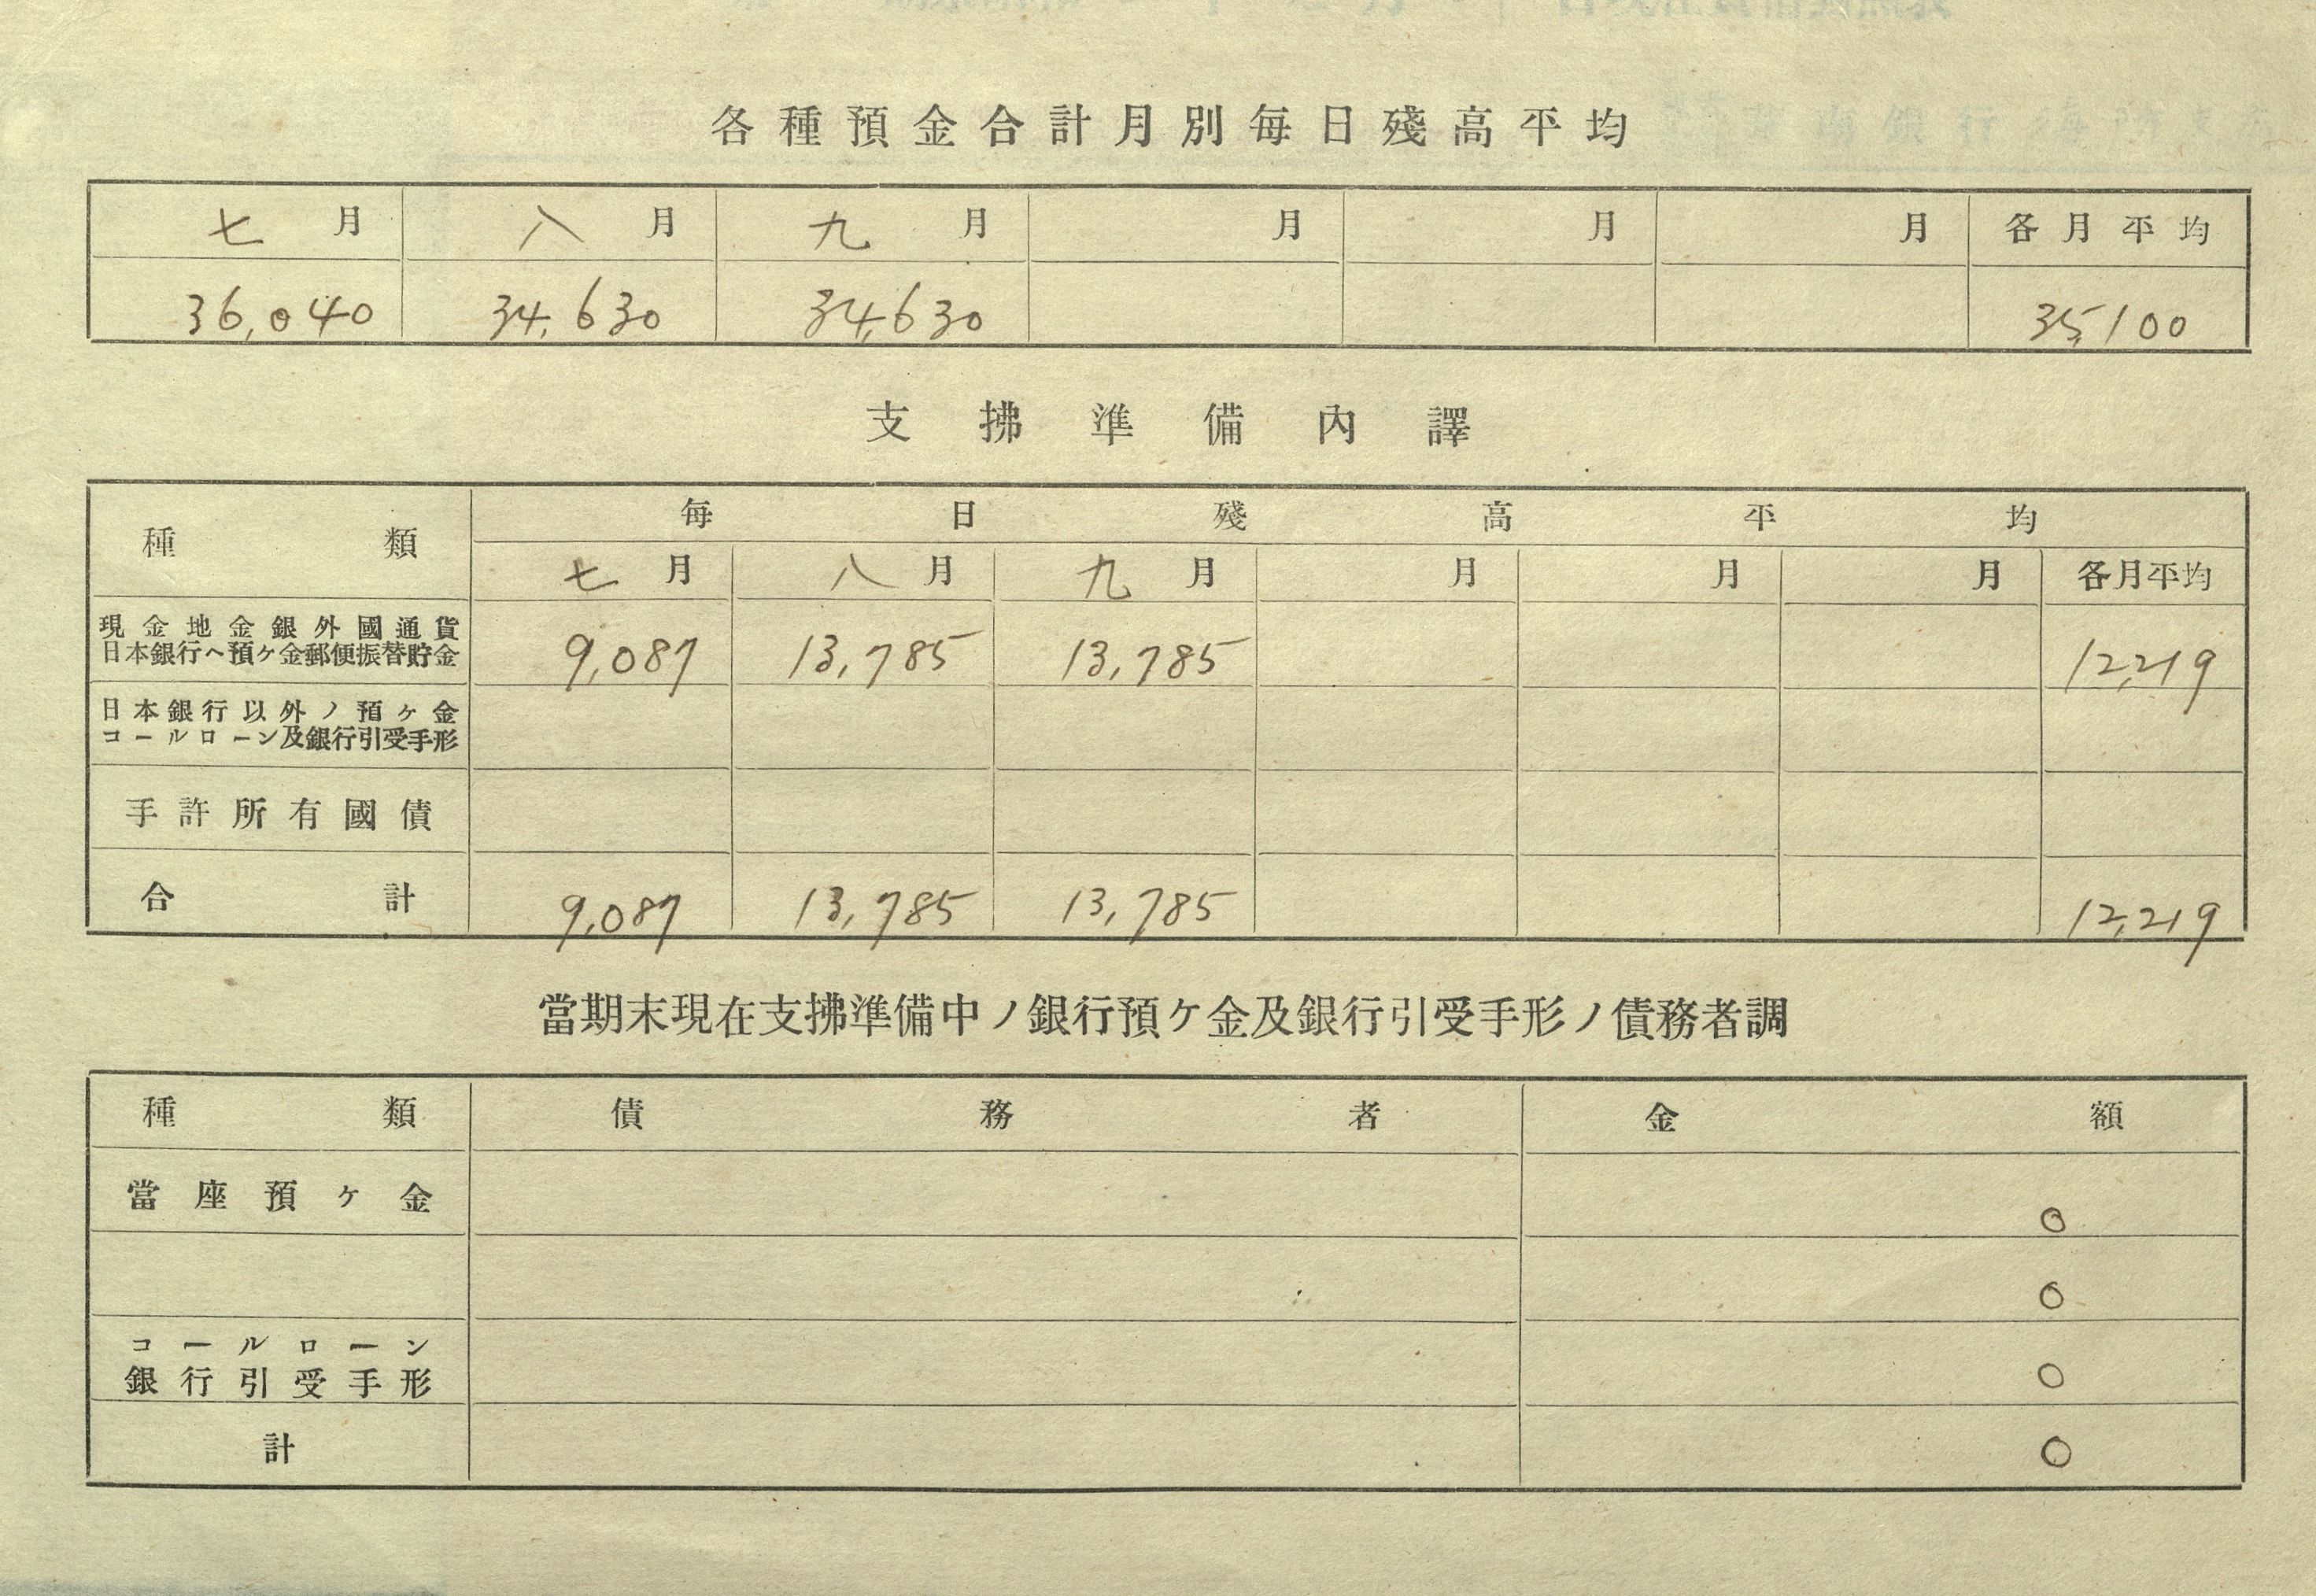 各種預金合計月別每日殘高平均
七月 八月 九月 月 月 月 各月平均
36,040 34,630 34,630 35,100
支拂準備內譯
種類 每日殘高平均
七月 八月 九月 月 月 月 各月平均
現金地金銀外國通貨
日本銀行ヘ預ケ金郵便振替貯金 9,087 13,785 13,785 12,219
日本銀行以外ノ預ヶ金
コールローン及銀行引受手形
手許所有國債
合計 9,087 13,785 13,785 12,219
當期末現在支拂準備中ノ銀行預ケ金及銀行引受手形ノ債務者調
種類 債務者 金額
當座預ケ金 0
0
コールローン
銀行引受手形 0
計 0